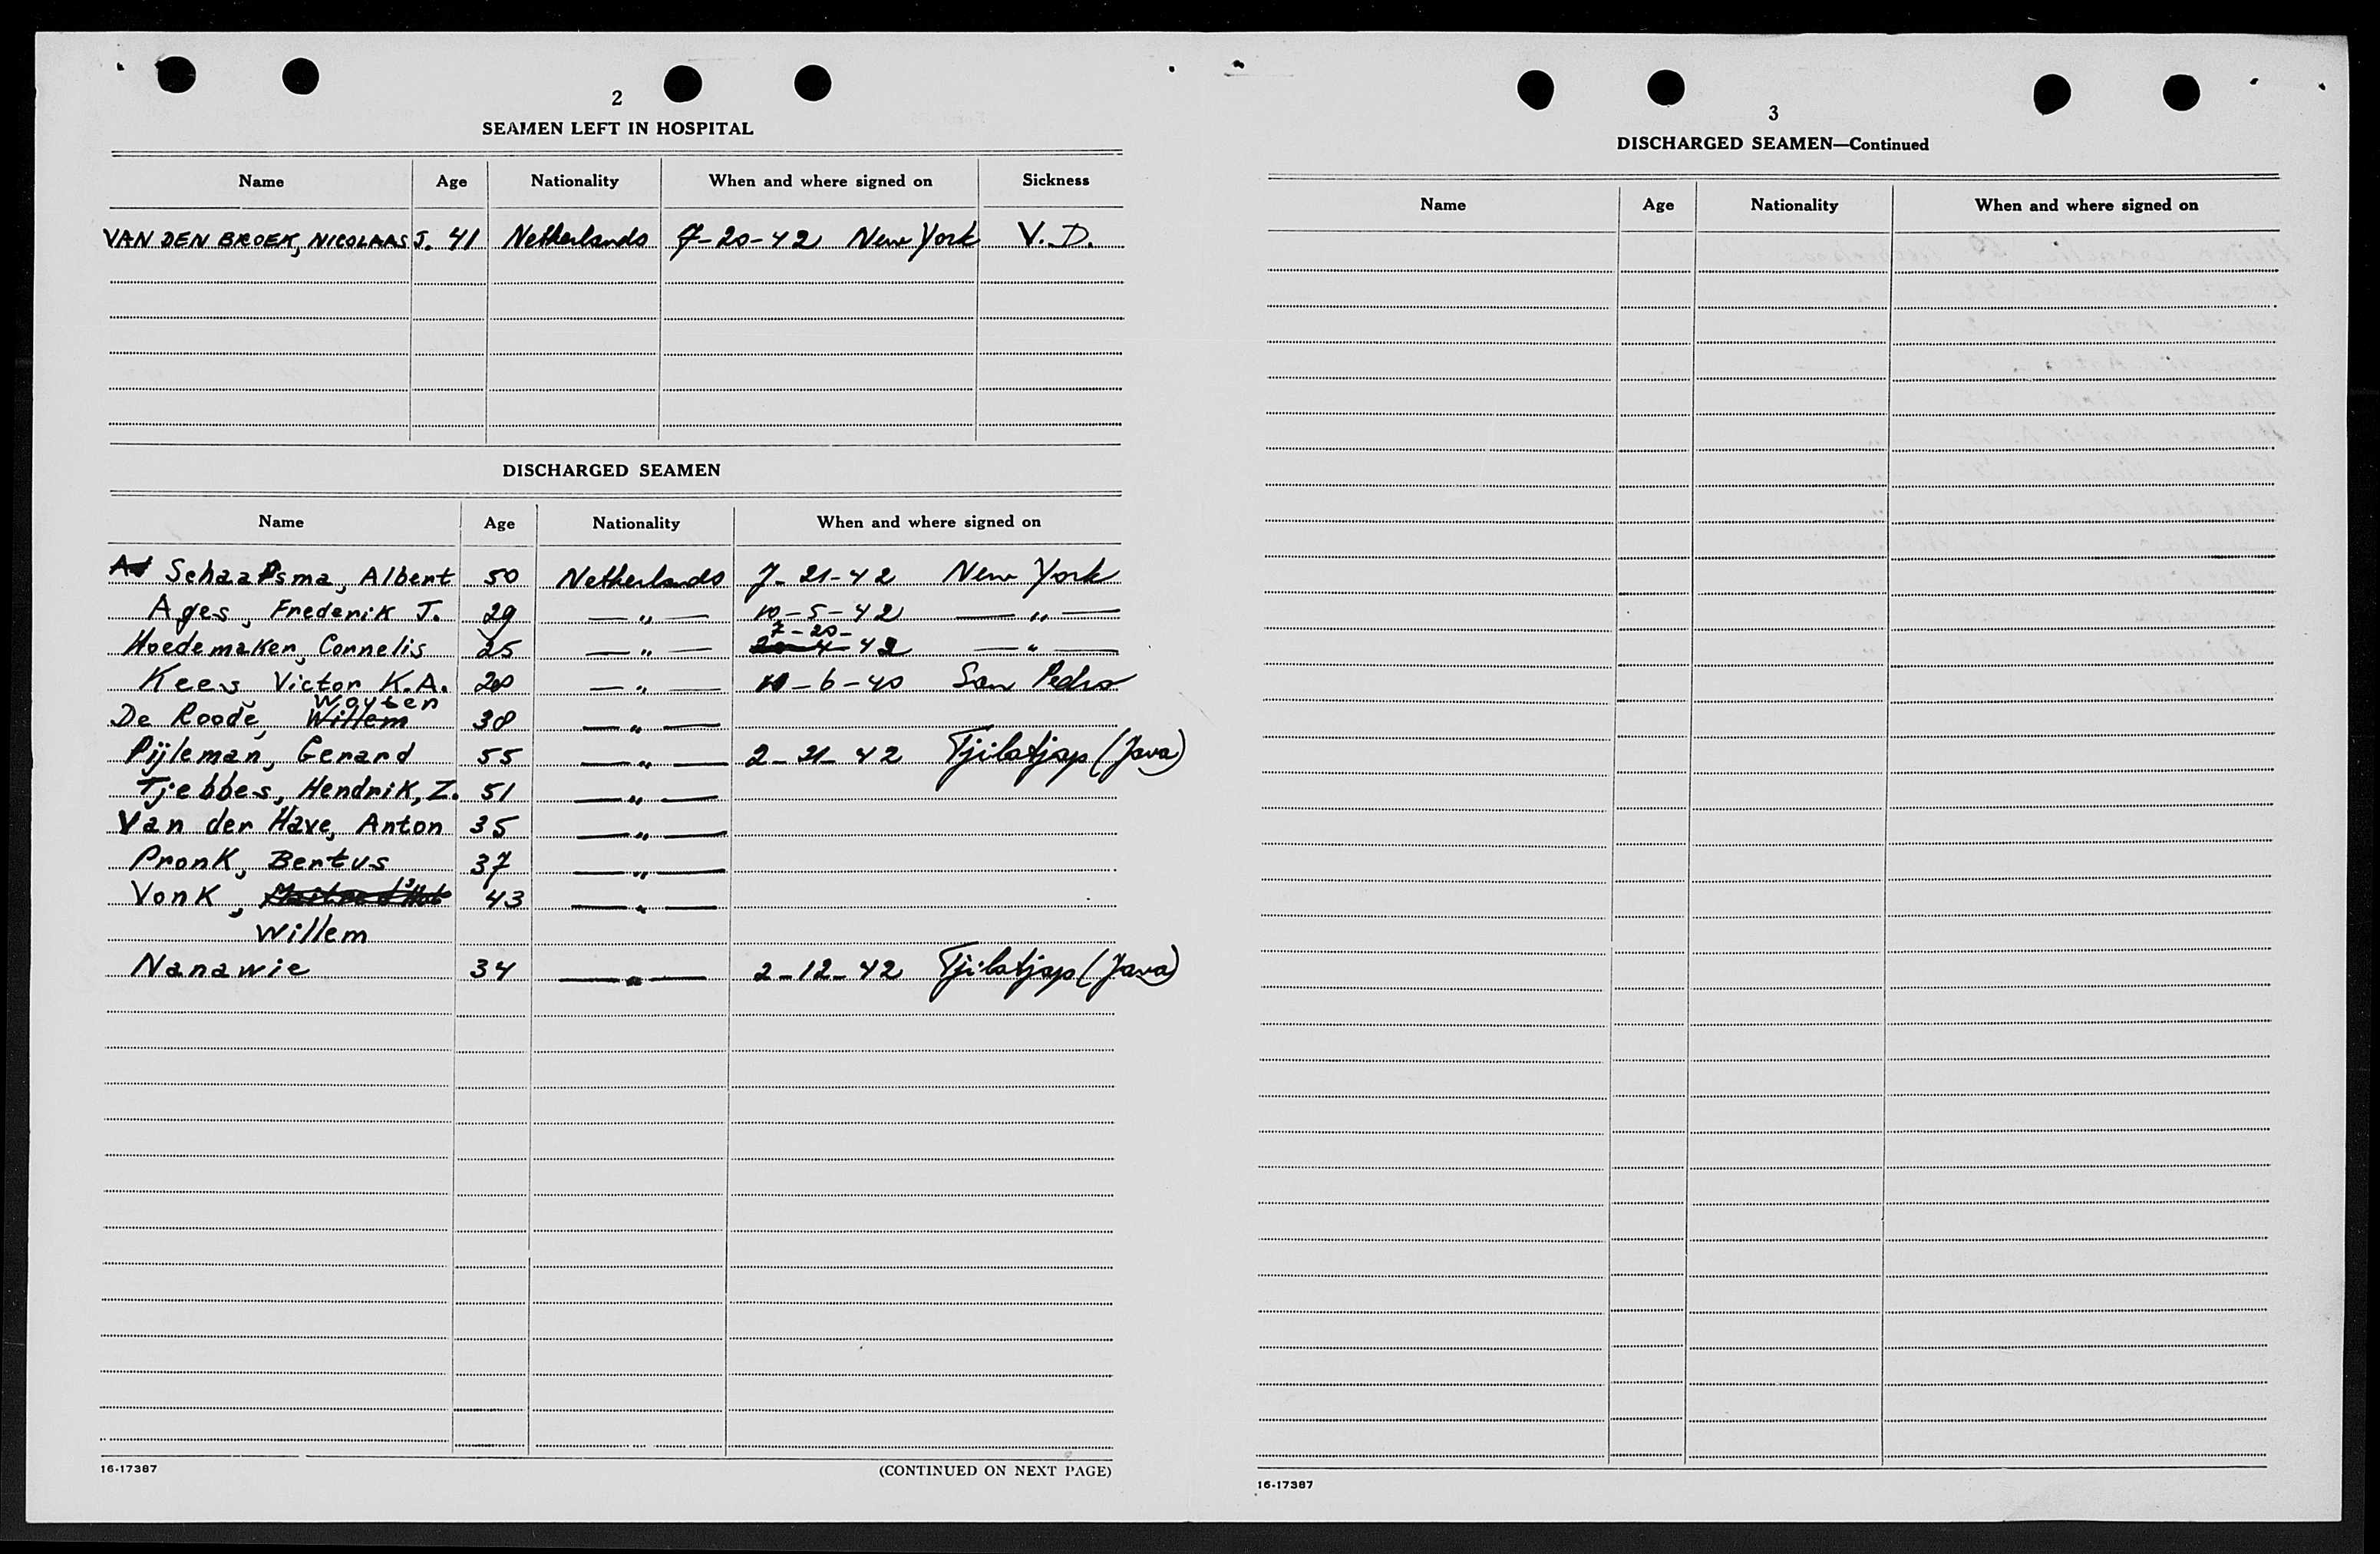 2
SEAMEN LEFT IN HOSPITAL
Name Age Nationality When and where signed on Sickness
VAN DEN BROEK, NICOLAAS J. 41 Netherlands 7-20-42 New York V.D.
DISCHARGED SEAMEN
Name Age Nationality When and where signed on
Schaafsma, Albert 50 Netherlands 7-21-42 New York
Ages, Frederik J. 29 — " — 10-5-42 — " —
7-20-
Hoedemaker, Cornelis 25 — " — 42 — " —
Kees, Victor K.A. 28 — " — 10-6-40 San Pedro
Wouter
De Roode, Willem 38 — " —
Pijleman, Gerard 55 — " — 2-21-42 Tjilatjap (Java)
Tjebbes, Hendrik, Z. 51 — " —
Van der Have, Anton 35 — " —
Pronk, Bertus 37 — " —
Vonk, 43 — " —
Willem
Nanawie 34 — " — 2-12-42 Tjilatjap (Java)
16-17387 (CONTINUED ON NEXT PAGE)
3
DISCHARGED SEAMEN—Continued
Name Age Nationality When and where signed on
16-17387